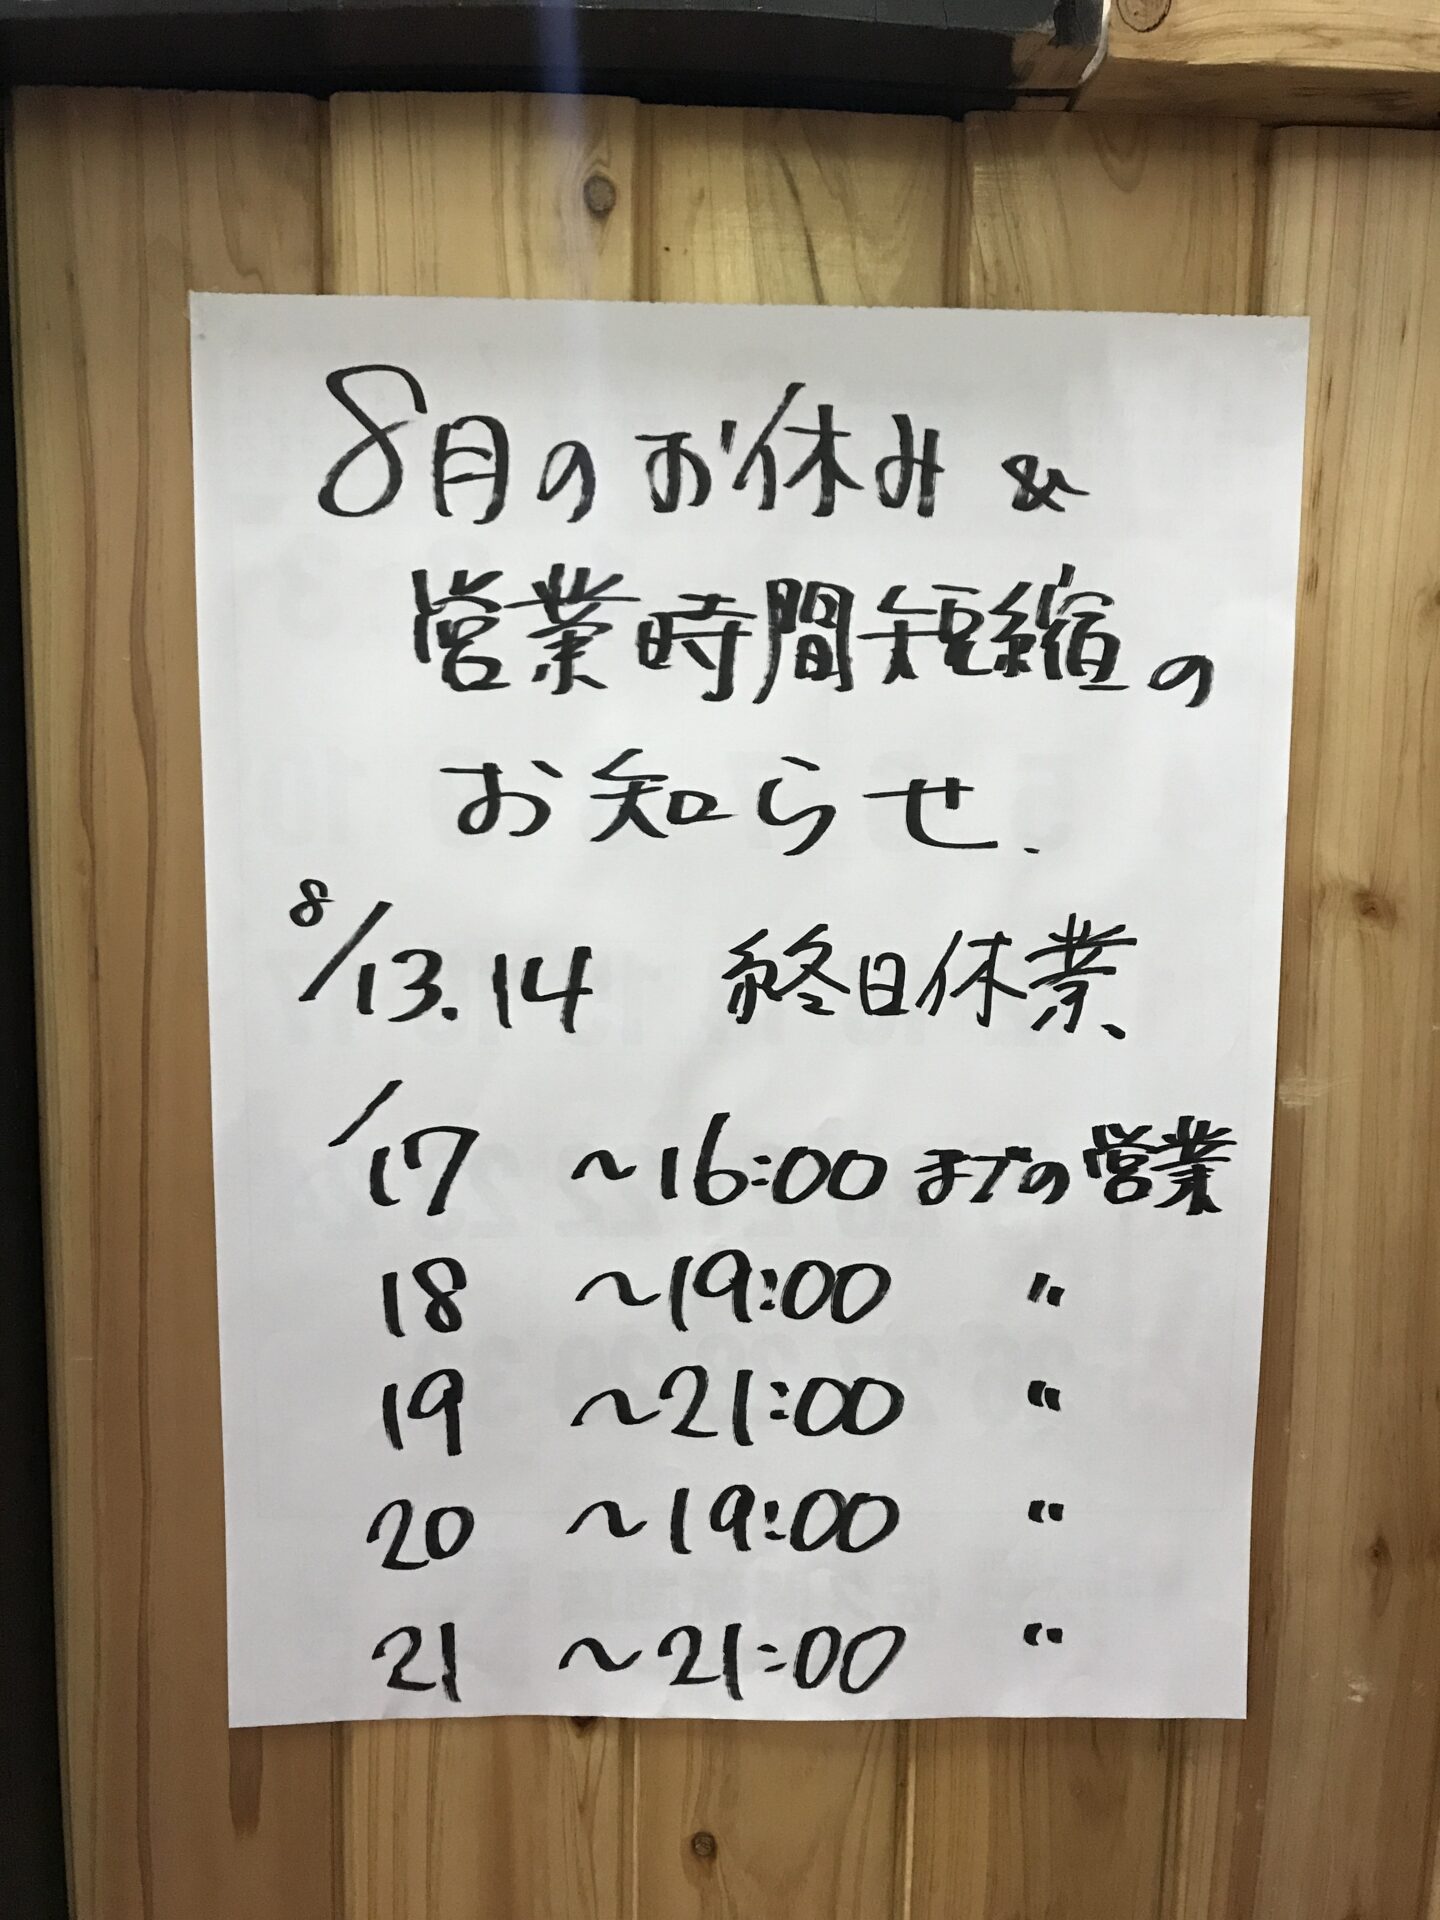 8月のお休み&
営業時間短縮の
お知らせ.
8/13.14 終日休業、
/17 〜16:00 までの営業
18 〜19:00 〃
19 〜21:00 〃
20 〜19:00 〃
21 〜21:00 〃